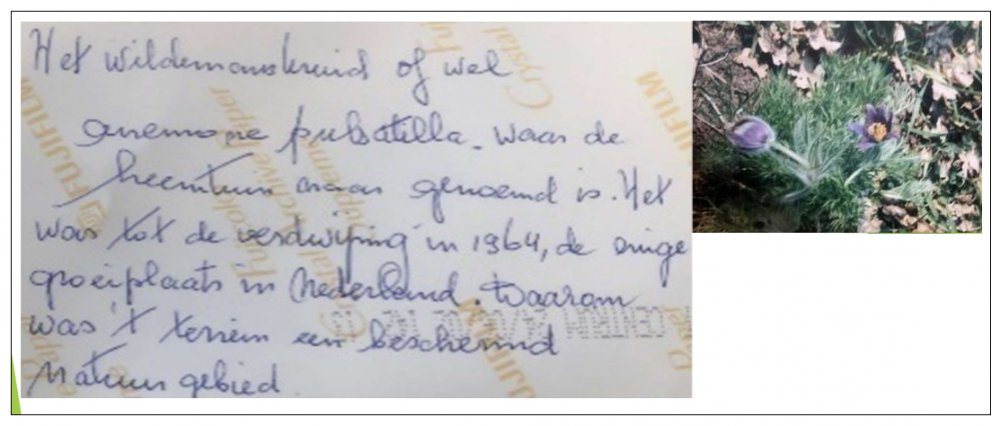 Het wildemanskruid of wel
anemone pulsatilla - waar de
heemtuin naar genoemd is. Het
was tot de verdwijning in 1964, de enige
groeiplaats in Nederland. Daarom
was 't terrein een beschermd
Natuurgebied.
FUJIFILM
Crystal
Archive Paper
FUJIFILM
Crystal
Archive Paper
Supreme
FUJIFILM